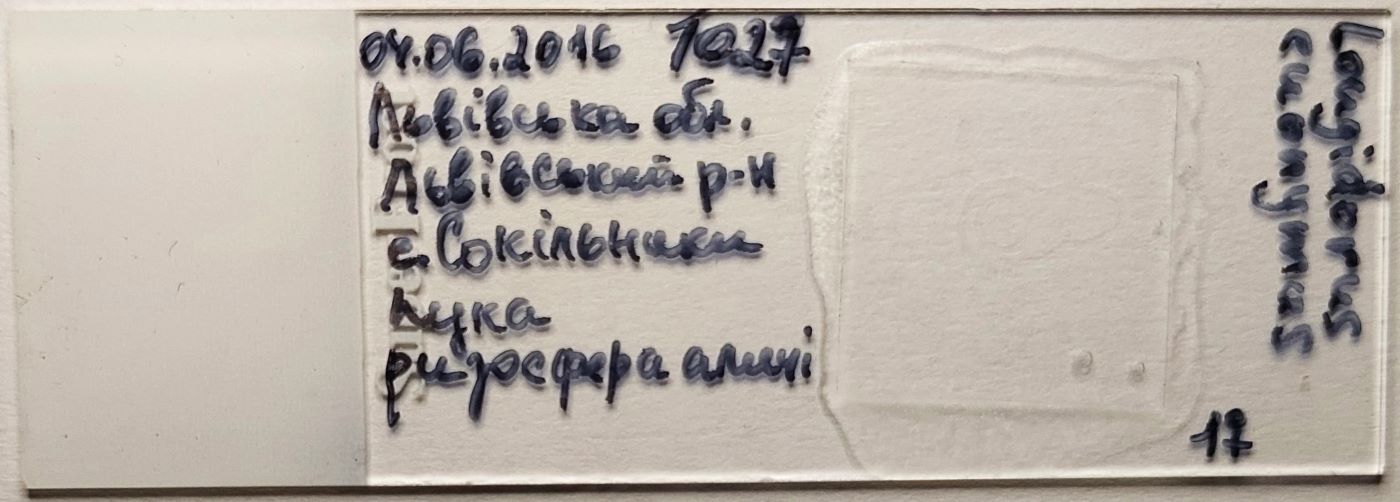 04.06.2016 1027
Львівська обл.
Львівський р-н
с. Сокільники
Лука
ризосфера
Longidorus
euonymus
17